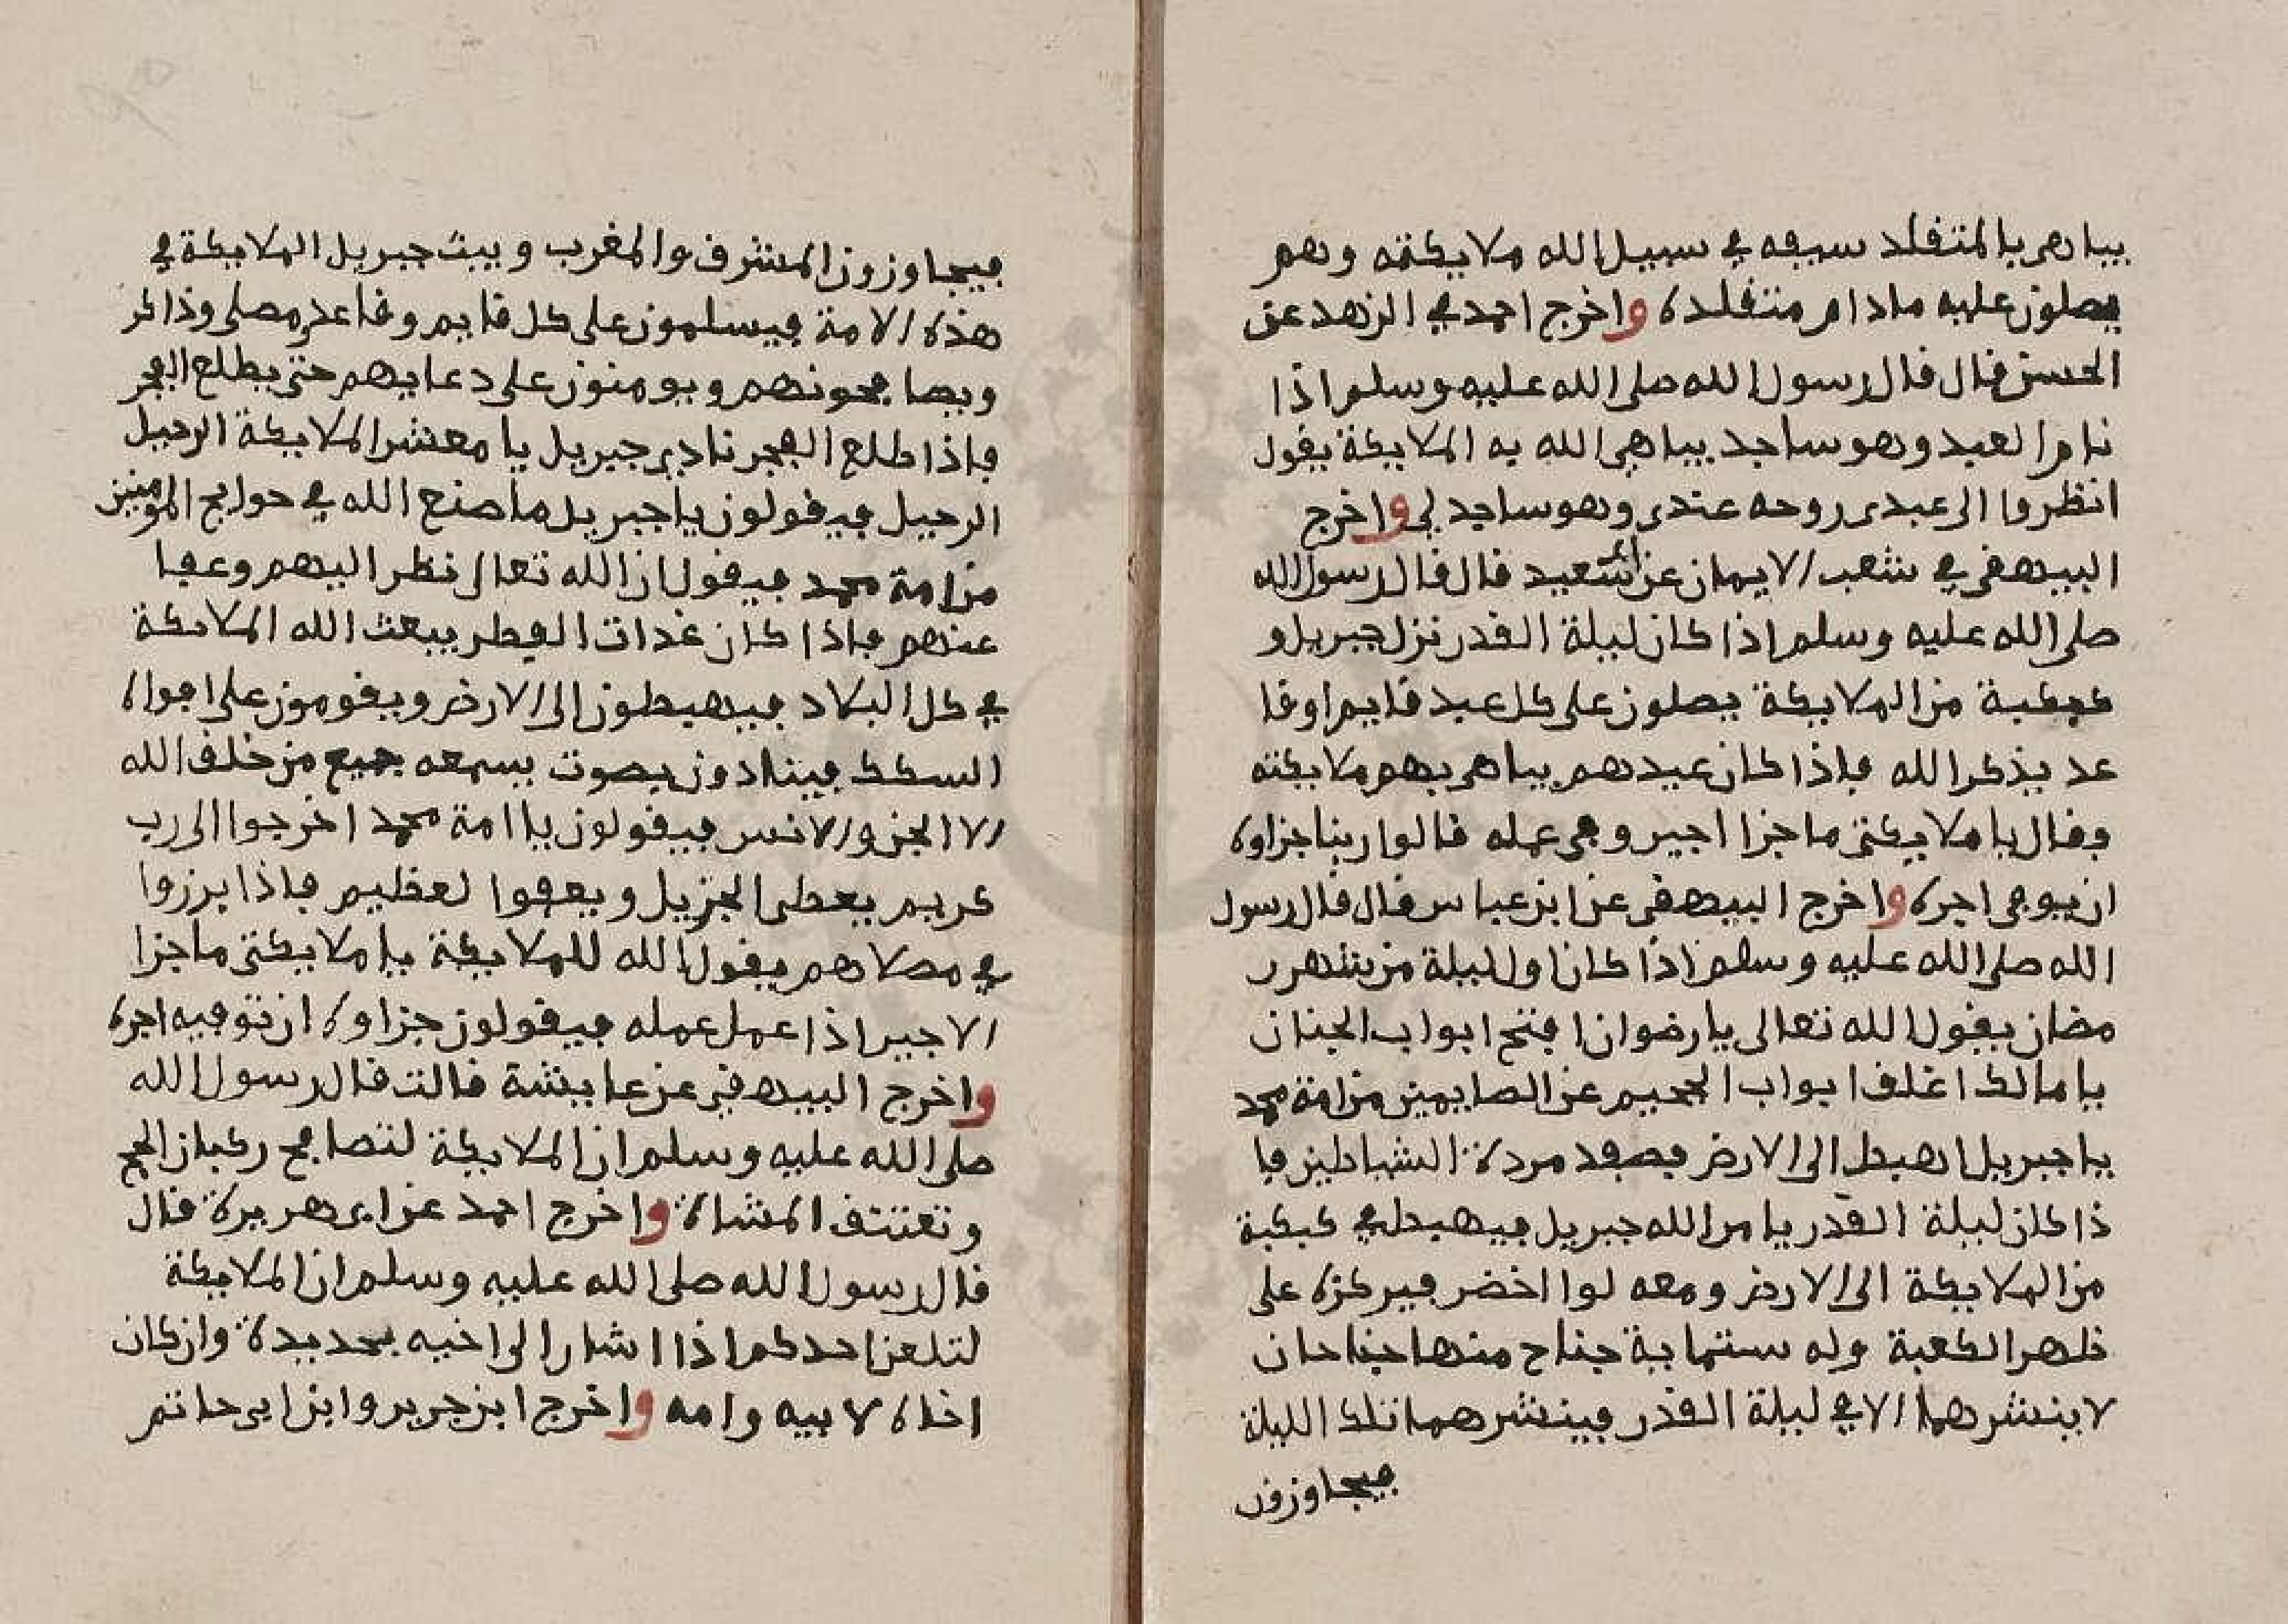 يباهي بالمتقلد سيفه في سبيل الله ملايكته وهم
يصلون عليه مادام متقلده واخرج احمد في الزهد عن
الحسن قال قال رسول الله صلى الله عليه وسلم اذا
نام العبد وهو ساجد يباهى الله به الملايكة يقول
انظروا الى عبدى روحه عندى وهو ساجد لى واخرج
البيهقى في شعب الايمان عن انس سعيد قال قال رسول الله
صلى الله عليه وسلم اذا كان ليلة القدر نزل جبريل و
كبكبة من الملايكة يصلون على كل عبد قايم اوقا
عد يذكر الله فاذا كان عيدهم يباهى بهم ملايكته
وقال يا ملايكتى ما جزا اجير وفى عمله قالوا ربنا جزاوه
ان يوفى اجره واخرج البيهقى عن ابن عباس قال قال رسول
الله صلى الله عليه وسلم اذا كان اول ليلة من شهر ر
مضان يقول الله تعالى يا رضوان افتح ابواب الجنان
يا مالك اغلق ابواب الجحيم عن الصايمين من امة محمد
يا جبريل اهبط الى الارض فصفد مردة الشياطين فا
ذا كان ليلة القدر يامر الله جبريل فيهبط في كبكبة
من الملايكة الى الارض ومعه لوا اخضر فيركزه على
ظهر الكعبة وله ستماية جناح منها جناحان
لا ينشرهما الا في ليلة القدر فينشرهما تلك الليلة
فيجاوزون
فيجاوزون المشرق والمغرب ويبث جبريل الملايكة في
هذه الامة فيسلمون على كل قايم وقاعد ومصلى وذاكر
ويصافحونهم ويومنون على دعايهم حتى يطلع الفجر
فاذا طلع الفجر نادى جبريل يا معشر الملايكة الرحيل
الرحيل فيقولون يا جبريل ما صنع الله في حوايج المومنين
من امة محمد فيقول ان الله تعالى نظر اليهم وعفا
عنهم فاذا كان غدات الفطر يبعث الله الملايكة
في كل البلاد فيهبطون الى الارض ويقومون على افواه
السكك فينادون بصوت يسمعه جميع من خلق الله
الا الجن والانس فيقولون يا امة محمد اخرجوا الى رب
كريم يعطى الجزيل ويعفوا لعظيم فاذا برزوا
في مصلاهم يقول الله للملايكة يا ملايكتى ما جزا
الاجير اذا عمل عمله فيقولون جزاوه ان توفيه اجره
واخرج البيهقى عن عايشة قالت قال رسول الله
صلى الله عليه وسلم ان الملايكة لتصافح ركبان الحج
وتعتنق المشاة واخرج احمد عن ابى هريرة قال
قال رسول الله صلى الله عليه وسلم ان الملايكة
لتلعن احدكم اذا اشار الى اخيه بحديدة وان كان
اخاه لابيه وامه واخرج ابن جرير وابن ابى حاتم